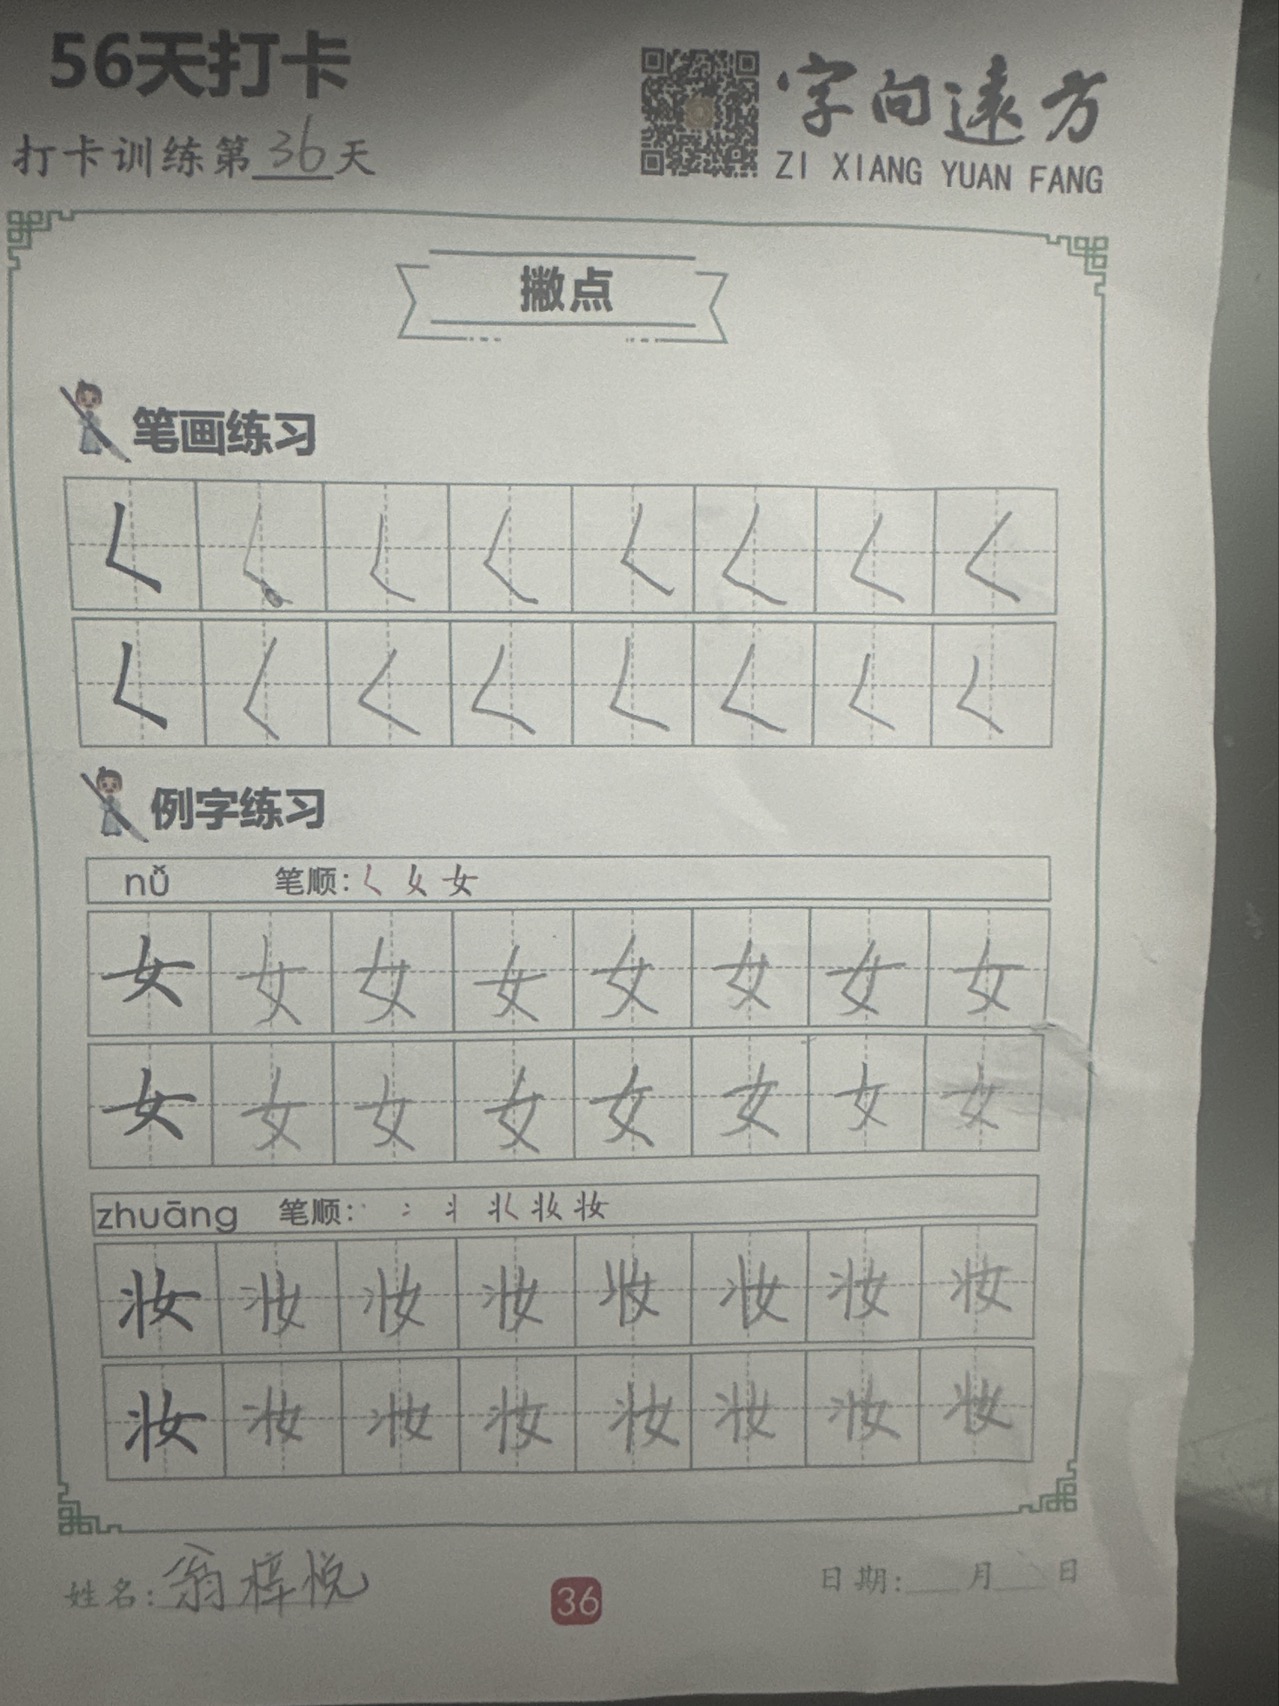 56天打卡
打卡训练第36天
字向遠方
ZI XIANG YUAN FANG
撇点
笔画练习
𡿨 𡿨 𡿨 𡿨 𡿨 𡿨 𡿨 𡿨
𡿨 𡿨 𡿨 𡿨 𡿨 𡿨 𡿨 𡿨
例字练习
nǚ 笔顺: 𡿨 女 女
女 女 女 女 女 女 女 女
女 女 女 女 女 女 女 女
zhuāng 笔顺: 丶 冫 丬 妆 妆
妆 妆 妆 妆 妆 妆 妆 妆
妆 妆 妆 妆 妆 妆 妆 妆
姓名:翁梓悦
36
日期:___月___日